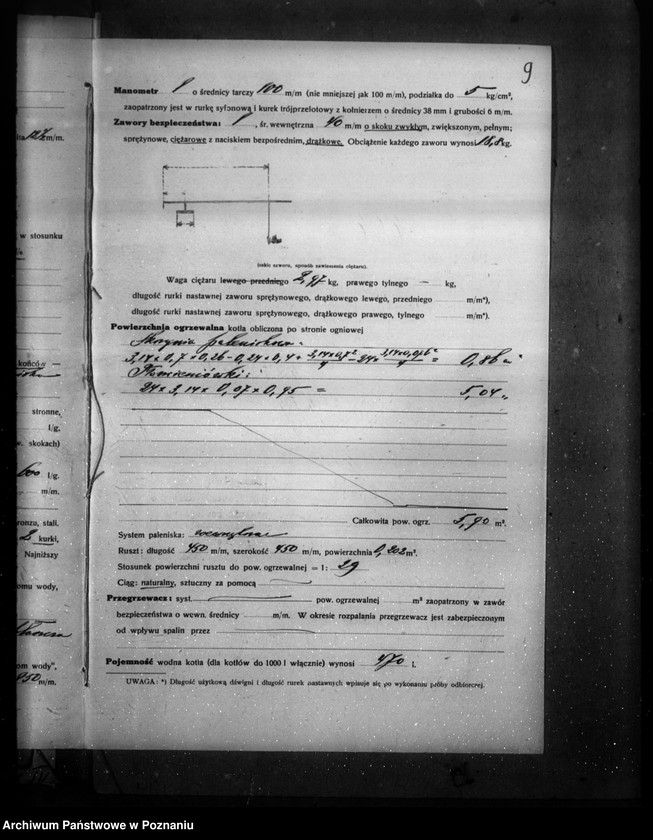 9
Manometr 1 o średnicy tarczy 100 m/m (nie mniejszej jak 100 m/m), podziałka do 5 kg/cm²,
zaopatrzony jest w rurkę syfonową i kurek trójprzelotowy z kołnierzem o średnicy 38 mm i grubości 6 m/m.
Zawory bezpieczeństwa: 1, śr. wewnętrzna 40 m/m o skoku zwykłym, zwiększonym, pełnym;
sprężynowe, ciężarowe z naciskiem bezpośrednim, drążkowe. Obciążenie każdego zaworu wynosi 18,8 kg.
(szkic zaworu, sposób zawieszenia ciężaru).
Waga ciężaru lewego przedniego 2,97 kg, prawego tylnego — kg,
długość rurki nastawnej zaworu sprężynowego, drążkowego lewego, przedniego m/m*),
długość rurki nastawnej zaworu sprężynowego, drążkowego prawego, tylnego m/m*).
Powierzchnia ogrzewalna kotła obliczona po stronie ogniowej
Skrzynia paleniskowa:
3,14 × 0,7 × 0,26 - 0,24 × 0,4 + 3,14 × 0,7² / 4 - 24 × 3,14 × 0,076² / 4 = 0,86 m²
Płomieniówki:
24 × 3,14 × 0,07 × 0,95 = 5,04 „
Całkowita pow. ogrz. 5,90 m².
System paleniska: wewnętrzne
Ruszt: długość 450 m/m, szerokość 450 m/m, powierzchnia 0,202 m².
Stosunek powierzchni rusztu do pow. ogrzewalnej = 1 : 29
Ciąg: naturalny, sztuczny za pomocą
Przegrzewacz: syst. pow. ogrzewalnej m² zaopatrzony w zawór
bezpieczeństwa o wewn. średnicy m/m. W okresie rozpalania przegrzewacz jest zabezpieczonym
od wpływu spalin przez
Pojemność wodna kotła (dla kotłów do 1000 l włącznie) wynosi 470 l.
UWAGA: *) Długość użytkową dźwigni i długość rurek nastawnych wpisuje się po wykonaniu próby odbiorczej.
m/m.
w stosunku
końców —
stronne,
l/g,
w. skokach)
600 l/g.
m/m.
ronzu, stali.
2 kurki,
Najniższy
omu wody,
om wody",
950 m/m.
Archiwum Państwowe w Poznaniu